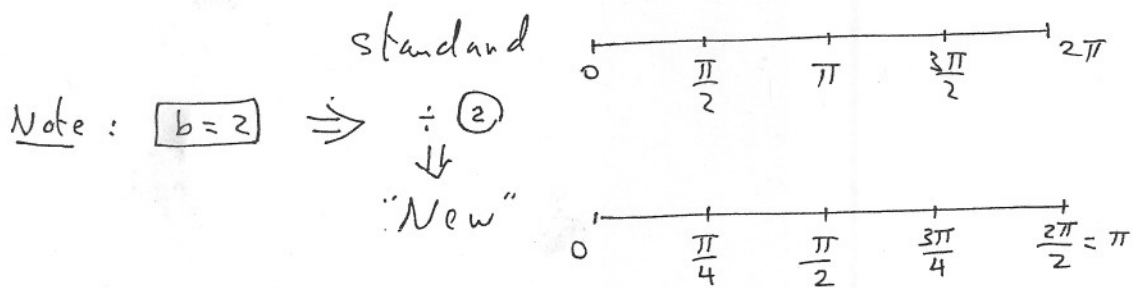 standard
0 π/2 π 3π/2 2π
Note : b = 2 ⇒ ÷ 2
⇓
"New"
0 π/4 π/2 3π/4 2π/2 = π